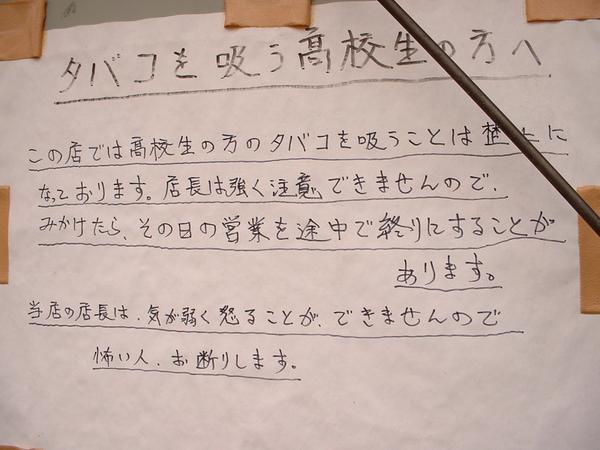 タバコを吸う高校生の方へ
この店では高校生の方のタバコを吸うことは禁止に
なっております。店長は強く注意できませんので、
みかけたら、その日の営業を途中で終りにすることが
あります。
当店の店長は、気が弱く怒ることが、できませんので
怖い人、お断りします。